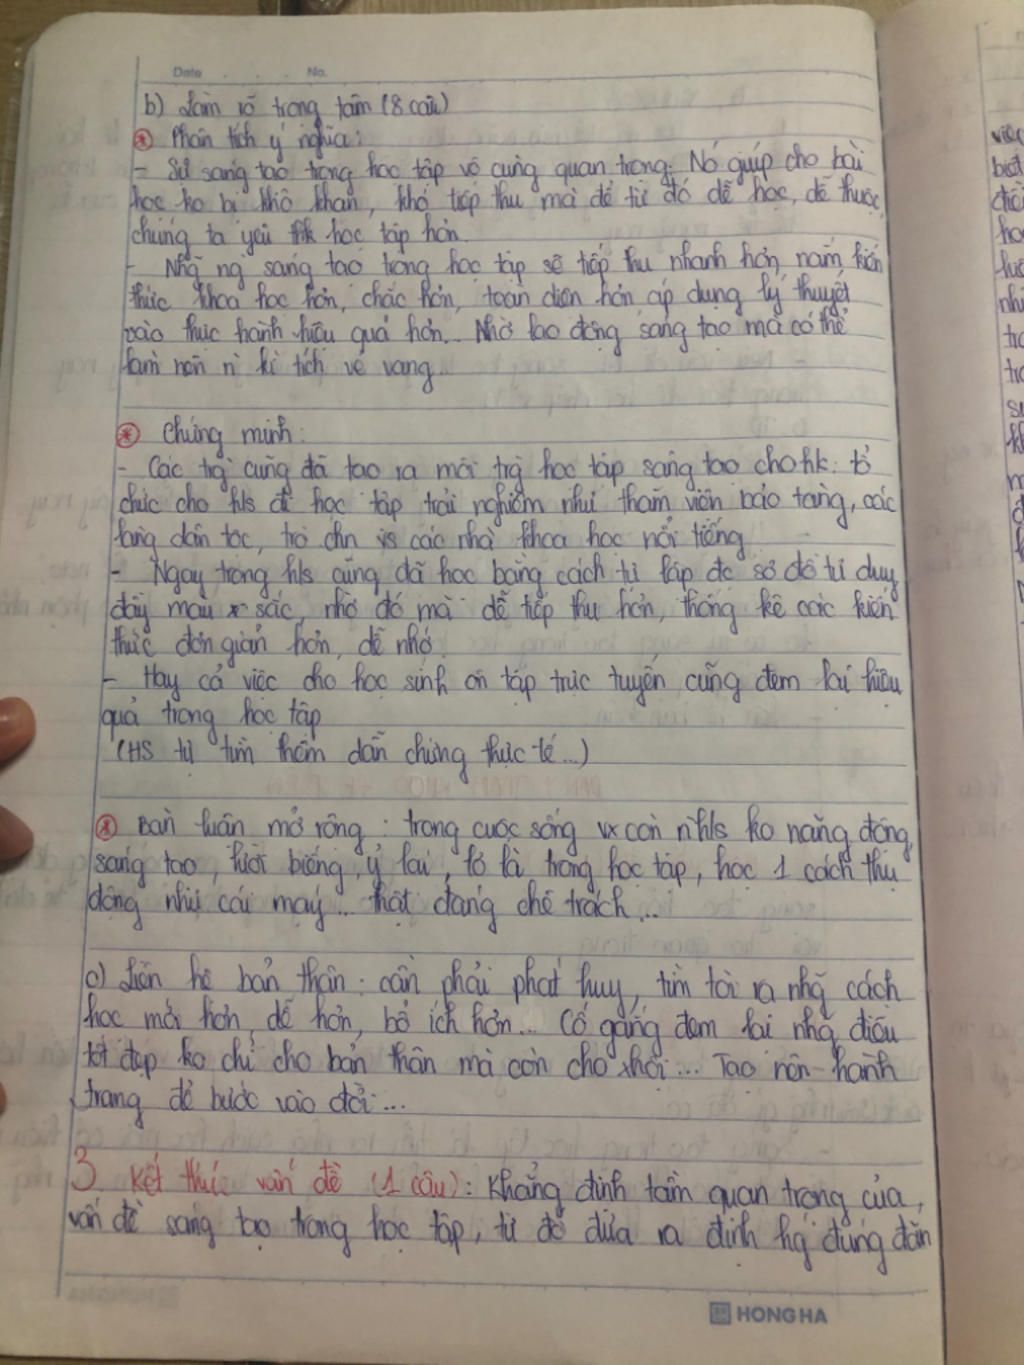 Date . . . No.
b) Làm rõ trọng tâm (8 câu)
* Phân tích ý nghĩa:
- Sự sáng tạo trong học tập vô cùng quan trọng. Nó giúp cho bài
học ko bị khô khan, khó tiếp thu mà để từ đó dễ học, dễ thuộc,
chúng ta yêu thk học tập hơn.
- Nhg ng sáng tạo trong học tập sẽ tiếp thu nhanh hơn, nắm kiến
thức khoa học hơn, chắc hơn, toàn diện hơn áp dụng lý thuyết
vào thực hành hiệu quả hơn... Nhờ lao động sáng tạo mà có thể
làm nên n kì tích vẻ vang
* Chứng minh:
- Các trg cũng đã tạo ra môi trg học tập sáng tạo cho hk: tổ
chức cho hs đi học tập trải nghiệm như thăm viện bảo tàng, các
làng dân tộc, trò chn vs các nhà khoa học nổi tiếng
- Ngay trong hs cũng đã học bằng cách tự lập đc sơ đồ tư duy
đầy màu sắc, nhờ đó mà dễ tiếp thu hơn, thống kê các kiến
thức đơn giản hơn, dễ nhớ.
- Hay cả việc cho học sinh ôn tập trực tuyến cũng đem lại hiệu
quả trong học tập
(HS tự tìm thêm dẫn chứng thực tế...)
* Bàn luận mở rộng: trong cuộc sống vx còn n hs ko năng động,
sáng tạo, lười biếng, ỷ lại, lơ là trong học tập, học 1 cách thụ
động như cái máy... thật đáng chê trách...
c) Liên hệ bản thân: cần phải phát huy, tìm tòi ra nhg cách
học mới hơn, dễ hơn, bổ ích hơn... Cố gắng đem lại nhg điều
tốt đẹp ko chỉ cho bản thân mà còn cho xhội... Tạo nên hành
trang để bước vào đời...
3. Kết thúc vấn đề (1 câu): Khẳng định tầm quan trọng của
vấn đề sáng tạo trong học tập, từ đó đưa ra định hg đúng đắn
HONG HA